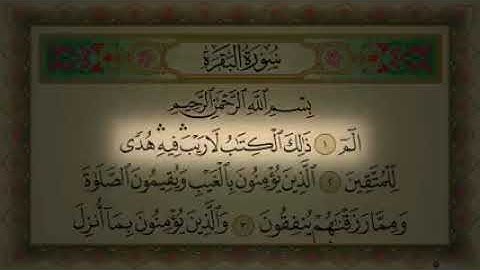 سُورَةُ الْبَقَرَةِ
بِسْمِ اللَّهِ الرَّحْمَٰنِ الرَّحِيمِ
الٓمٓ ۝١ ذَٰلِكَ الْكِتَٰبُ لَا رَيْبَ ۛ فِيهِ ۛ هُدًى
لِّلْمُتَّقِينَ ۝٢ الَّذِينَ يُؤْمِنُونَ بِالْغَيْبِ وَيُقِيمُونَ الصَّلَوٰةَ
وَمِمَّا رَزَقْنَٰهُمْ يُنفِقُونَ ۝٣ وَالَّذِينَ يُؤْمِنُونَ بِمَا أُنزِلَ